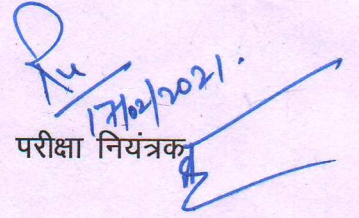 17/02/2021.
परीक्षा नियंत्रक